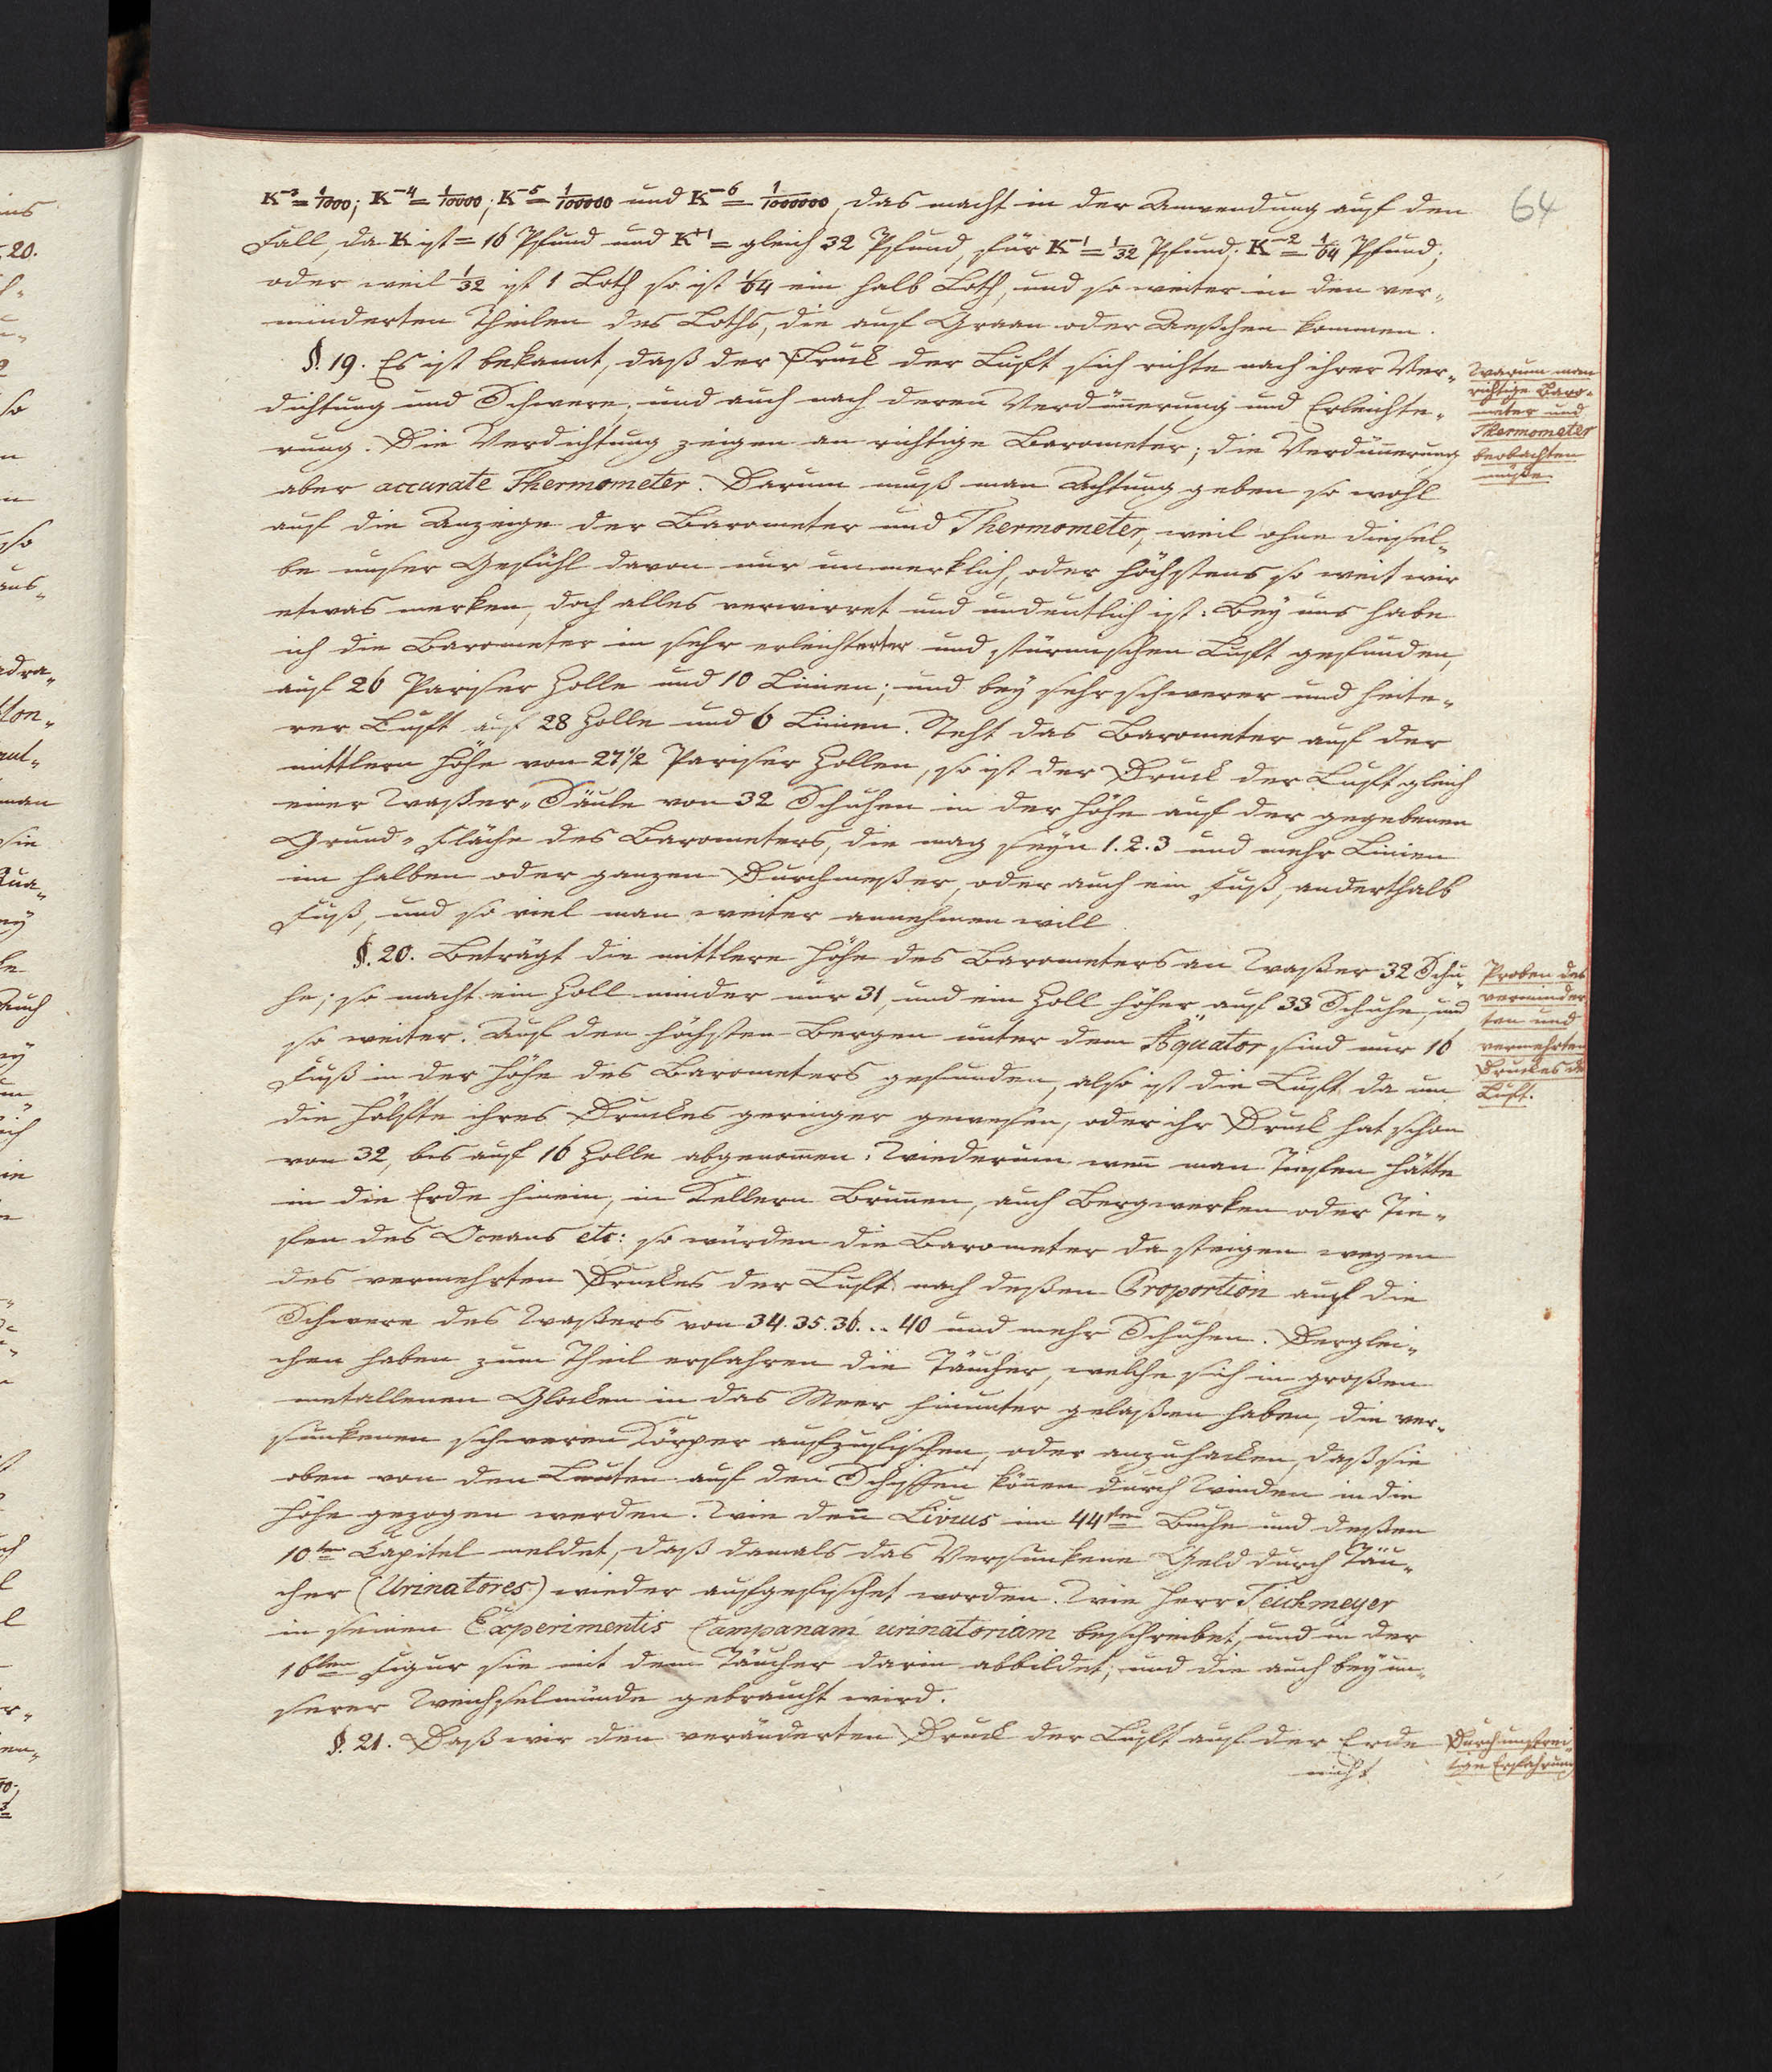 64
K⁻³ = 1/1000; K⁻⁴ = 1/10000; K⁻⁵ = 1/100000 und K⁻⁶ = 1/1000000, das macht in der Anwendung auf den
Fall, da K ist = 16 Pfund und K⁺¹ = gleich 32 Pfund, für K⁻¹ = 1/32 Pfund; K⁻² = 1/64 Pfund;
oder weil 1/32 ist 1 Loth so ist 1/64 ein halb Loth, und so weiter in den ver-
minderten Theilen des Loths, die auf Graan oder Aeßchen kommen.
§. 19. Es ist bekannt, daß der Druck der Luft sich richte nach ihrer Ver-
dichtung und Schwere, und auch nach deren Verdünnerung und Erleichte-
rung. Die Verdichtung zeigen an richtige Barometer; die Verdünnerung
aber accurate Thermometer. Darum muß man Achtung geben so wohl
auf die Anzeige der Barometer und Thermometer, weil ohne diesel-
be unser Gefühl davon nur unmerklich, oder höchstens so weit wir
etwas merken, doch alles verwirret und undeutlich ist. Bey uns habe
ich die Barometer in sehr erleichterter und stürmischen Luft gefunden,
auf 26 Pariser Zolle und 10 Linien; und bey sehr schwerer und heite-
rer Luft auf 28 Zolle und 6 Linien. Steht das Barometer auf der
mittlern Höhe von 27 1/2 Pariser Zollen, so ist der Druck der Luft gleich
einer Waßer-Säule von 32 Schuhen in der Höhe auf der gegebenen
Grund-Fläche des Barometers, die mag seyn 1. 2. 3 und mehr Linien
im halben oder ganzen Durchmeßer, oder auch ein Fuß, anderthalb
Fuß, und so viel man weiter annehmen will
§. 20. Beträgt die mittlere Höhe des Barometers an Waßer 32 Schu-
he; so macht ein Zoll minder nur 31, und ein Zoll höher auf 33 Schuhe, und
so weiter. Auf den höchsten Bergen unter dem Äquator sind nur 16
Fuß in der Höhe des Barometers gefunden, also ist die Luft da um
die Hälfte ihres Druckes geringer gewesen, oder ihr Druck hat schon
von 32, bis auf 16 Zolle abgenommen. Wiederum wenn man Tiefen hätte
in die Erde hinein, in Kellern Brunnen, auch Bergwerken oder Tie-
fen des Oceans etc: so würden die Barometer da steigen wegen
des vermehrten Druckes der Luft nach deßen Proportion auf die
Schwere des Waßers von 34. 35. 36. .. 40 und mehr Schuhen. Derglei-
chen haben zum Theil erfahren die Täucher, welche sich in großen
metallenen Glocken in das Meer hinunter gelaßen haben, die ver-
sunkenen schweren Körper aufzufischen, oder anzuhacken, daß sie
oben von den Leuten auf den Schiffen können durch Winden in die
Höhe gezogen werden. Wie denn Livius im 44sten Buche und deßen
10ten Capitel meldet, daß damals das Versunkene Geld durch Täu-
cher (Urinatores) wieder aufgefischet worden. Wie Herr Teichmeyer
in seinen Experimentis Campanam urinatoriam beschreibet, und in der
16ten Figur sie mit dem Täucher darin abbildet; und die auch bey un-
serer Weichselmünde gebraucht wird.
§. 21. Daß wir den veränderten Druck der Luft auf der Erde
nicht
Warum man
richtige Baro-
meter und
Thermometer
beobachten
müße
Proben des
verminder
ten und
vermehrten
Druckes de
Luft.
Durch unstrei-
tige Erfahrung